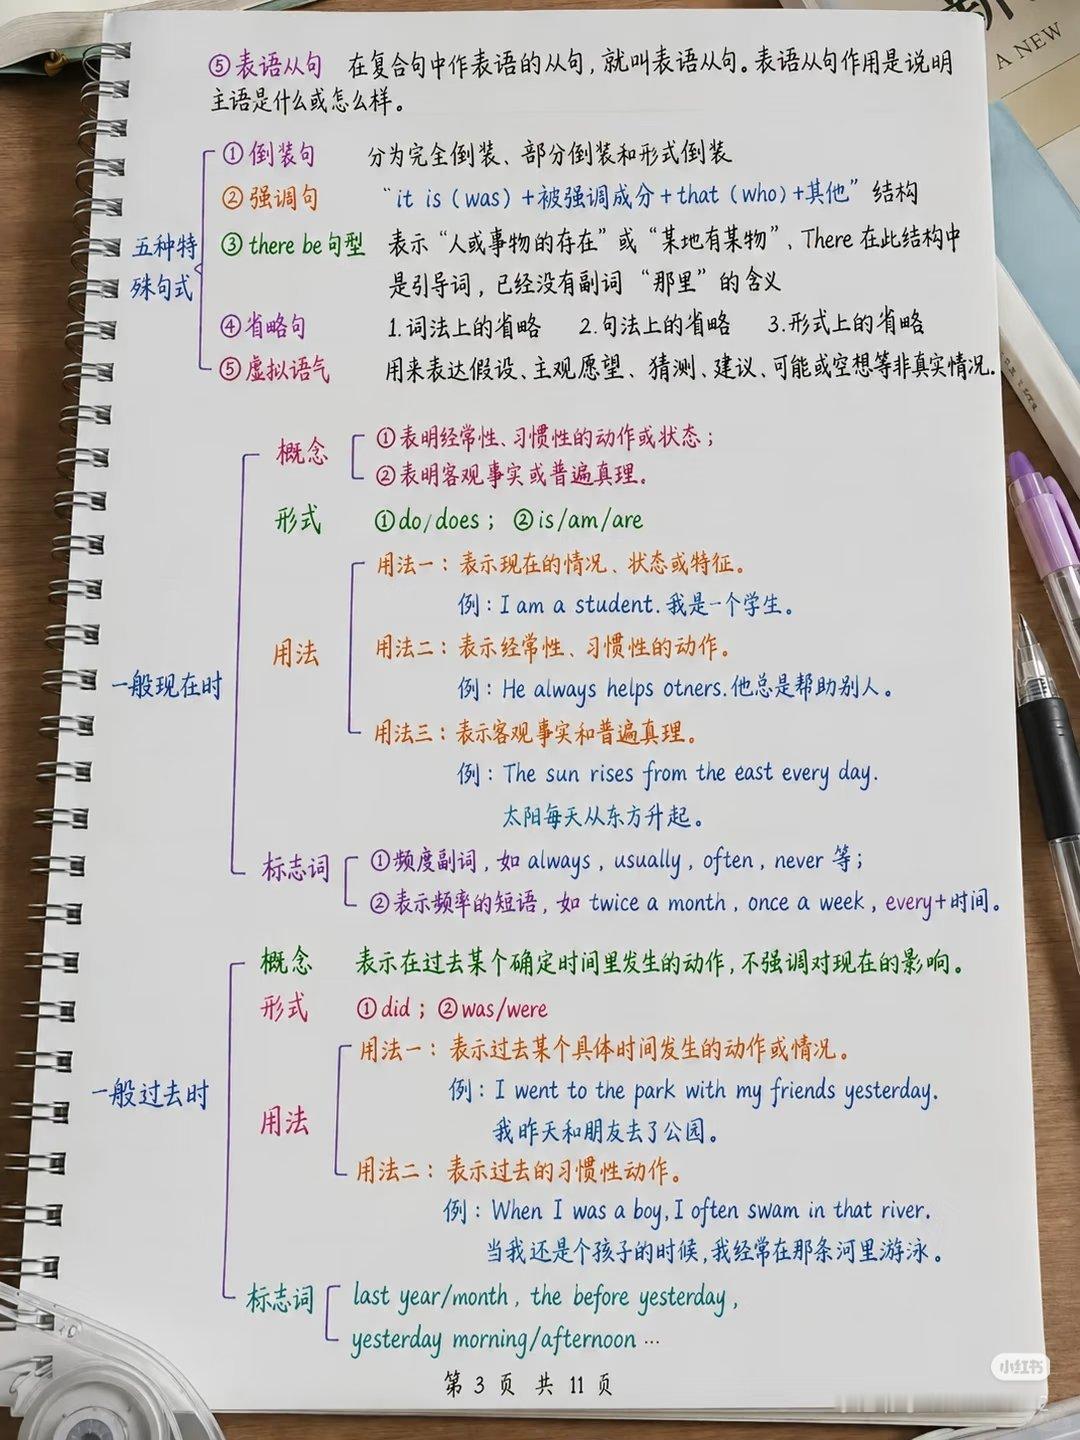 A NEW
⑤表语从句 在复合句中作表语的从句，就叫表语从句。表语从句作用是说明
主语是什么或怎么样。
五种特殊句式
①倒装句 分为完全倒装、部分倒装和形式倒装
②强调句 “it is (was) +被强调成分+that (who)+其他”结构
③there be句型 表示“人或事物的存在”或“某地有某物”、There 在此结构中
是引导词，已经没有副词“那里”的含义
④省略句 1.词法上的省略 2.句法上的省略 3.形式上的省略
⑤虚拟语气 用来表达假设、主观愿望、猜测、建议、可能或空想等非真实情况.
一般现在时
概念 ①表明经常性、习惯性的动作或状态；
②表明客观事实或普遍真理。
形式 ①do/does； ②is/am/are
用法
用法一：表示现在的情况、状态或特征。
例：I am a student.我是一个学生。
用法二：表示经常性、习惯性的动作。
例：He always helps otners.他总是帮助别人。
用法三：表示客观事实和普遍真理。
例：The sun rises from the east every day.
太阳每天从东方升起。
标志词 ①频度副词，如 always，usually，often，never 等；
②表示频率的短语，如 twice a month，once a week，every+时间。
一般过去时
概念 表示在过去某个确定时间里发生的动作，不强调对现在的影响。
形式 ①did；②was/were
用法
用法一：表示过去某个具体时间发生的动作或情况。
例：I went to the park with my friends yesterday.
我昨天和朋友去了公园。
用法二：表示过去的习惯性动作。
例：When I was a boy,I often swam in that river.
当我还是个孩子的时候，我经常在那条河里游泳。
标志词 last year/month，the before yesterday，
yesterday morning/afternoon …
第 3 页 共 11 页
小红书